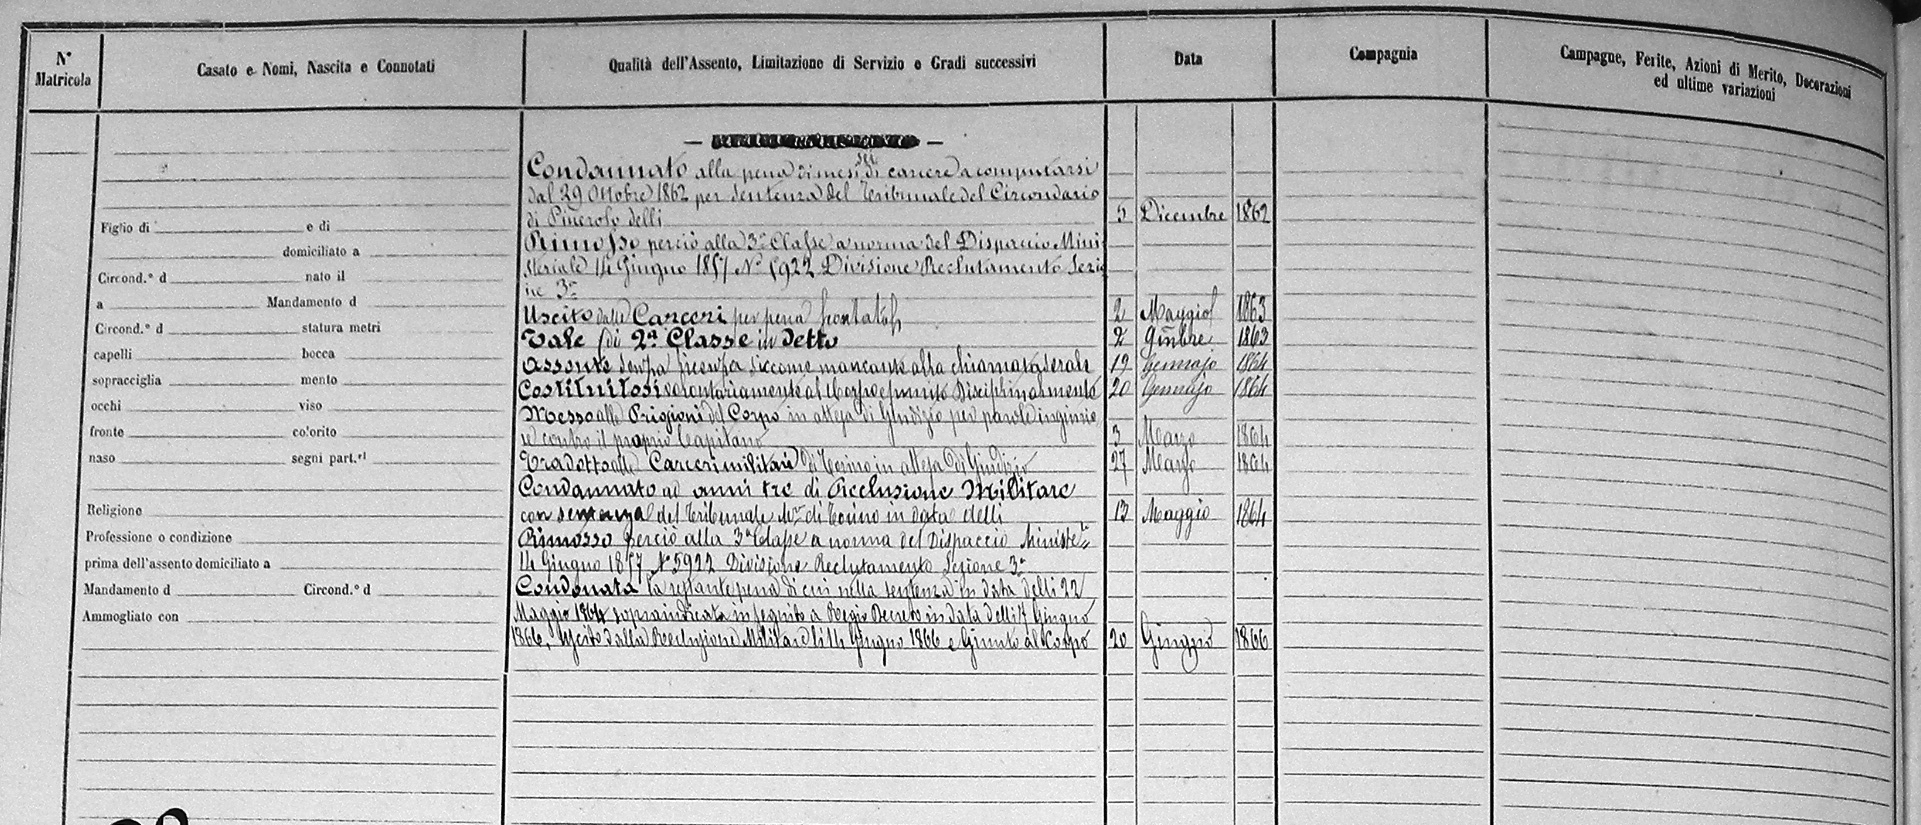 N° Matricola
Casato e Nomi, Nascita e Connotati
Qualità dell'Assento, Limitazione di Servizio e Gradi successivi
Data
Compagnia
Campagne, Ferite, Azioni di Merito, Decorazioni
ed ultime variazioni
Figlio di e di
domiciliato a
Circond.° d nato il
a Mandamento d
Circond.° d statura metri
capelli bocca
sopracciglia mento
occhi viso
fronte colorito
naso segni part.ri
Religione
Professione o condizione
prima dell'assento domiciliato a
Mandamento d Circond.° d
Ammogliato con
Condannato alla pena di mesi sei di carcere a computarsi
dal 29 Ottobre 1862 per sentenza del Tribunale del Circondario
di Pinerolo delli 5 Dicembre 1862
Rimosso perciò alla 3a Classe a norma del Dispaccio Mini
steriale 14 Giugno 1857 N° 5922 Divisione Reclutamento Sezio
ne 3a
Uscito dalle Carceri per pena 2 Maggio 1863
Tale di 2a Classe in detto 2 1863
Assente senza licenza siccome mancante alla chiamata serale 19 Gennajo 1864
Costituitosi volontariamente al Corpo e punito Disciplinarmente 20 Gennajo 1864
Messo alle Prigioni del Corpo in attesa di Giudizio per parole ingiurio
se contro il proprio Capitano 3 Marzo 1864
Tradotto alle Carceri militari di Torino in attesa di Giudizio 27 Marzo 1864
Condannato ad anni tre di Reclusione Militare
con sentenza del Tribunale Mre di Torino in data delli 13 Maggio 1864
Rimosso perciò alla 3a Classe a norma del Dispaccio Ministe
14 Giugno 1857 N° 5922 Divisione Reclutamento Sezione 3a
Condonata la restante pena di cui nella sentenza in data delli 22
Maggio 1864 sopraindicata in seguito a Regio Decreto in data delli Giugno
1866, Uscito dalla Reclusione Militare li 14 Giugno 1866 e Giunto al Corpo 20 Giugno 1866